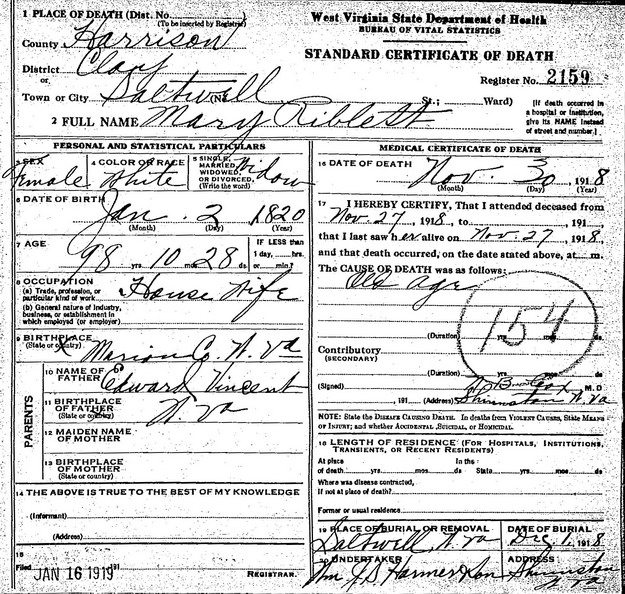 1 PLACE OF DEATH (Dist. No.
(To be inserted by Registrar)
County Harrison
District Clay
or
Town or City Saltwell (No. St.; Ward)
2 FULL NAME Mary Riblett
West Virginia State Department of Health
BUREAU OF VITAL STATISTICS
STANDARD CERTIFICATE OF DEATH
Register No. 2159
[If death occurred in
a hospital or institution,
give its NAME instead
of street and number.]
PERSONAL AND STATISTICAL PARTICULARS
3 SEX Female
4 COLOR OR RACE White
5 SINGLE, MARRIED, WIDOWED, OR DIVORCED, (Write the word) Widow
6 DATE OF BIRTH Jan 2 1820
(Month) (Day) (Year)
7 AGE 98 yrs 10 mos 28 ds
IF LESS than
1 day, hrs.
or min.?
8 OCCUPATION House Wife
(a) Trade, profession, or
particular kind of work
(b) General nature of industry,
business, or establishment in
which employed (or employer)
9 BIRTHPLACE
(State or country) Marion Co. W. Va
PARENTS
10 NAME OF
FATHER Edward Vincent
11 BIRTHPLACE
OF FATHER W. Va
(State or country)
12 MAIDEN NAME
OF MOTHER
13 BIRTHPLACE
OF MOTHER
(State or country)
14 THE ABOVE IS TRUE TO THE BEST OF MY KNOWLEDGE
(Informant)
(Address)
15
Filed JAN 16 1919 191
REGISTRAR.
MEDICAL CERTIFICATE OF DEATH
16 DATE OF DEATH Nov. 30, 1918
(Month) (Day) (Year)
17 I HEREBY CERTIFY, That I attended deceased from
Nov. 27, 1918, to , 191
that I last saw her alive on Nov. 27, 1918,
and that death occurred, on the date stated above, at m.
The CAUSE OF DEATH was as follows:
Old age
154
(Duration) yrs mos ds
Contributory
(SECONDARY)
(Duration) yrs mos ds
(Signed) Cox, M.D
, 191 (Address) Shinnston W. Va
NOTE: State the DISEASE CAUSING DEATH. In deaths from VIOLENT CAUSES, State MEANS
OF INJURY; and whether ACCIDENTAL, SUICIDAL, or HOMICIDAL.
18 LENGTH OF RESIDENCE (FOR HOSPITALS, INSTITUTIONS,
TRANSIENTS, OR RECENT RESIDENTS)
At place In the
of death yrs mos ds State yrs mos ds
Where was disease contracted,
If not at place of death?
Former or usual residence
19 PLACE OF BURIAL OR REMOVAL
Saltwell, W. Va
DATE OF BURIAL
Dec. 1, 1918
20 UNDERTAKER
Wm J S Harmer & Son
ADDRESS
Shinnston
W Va